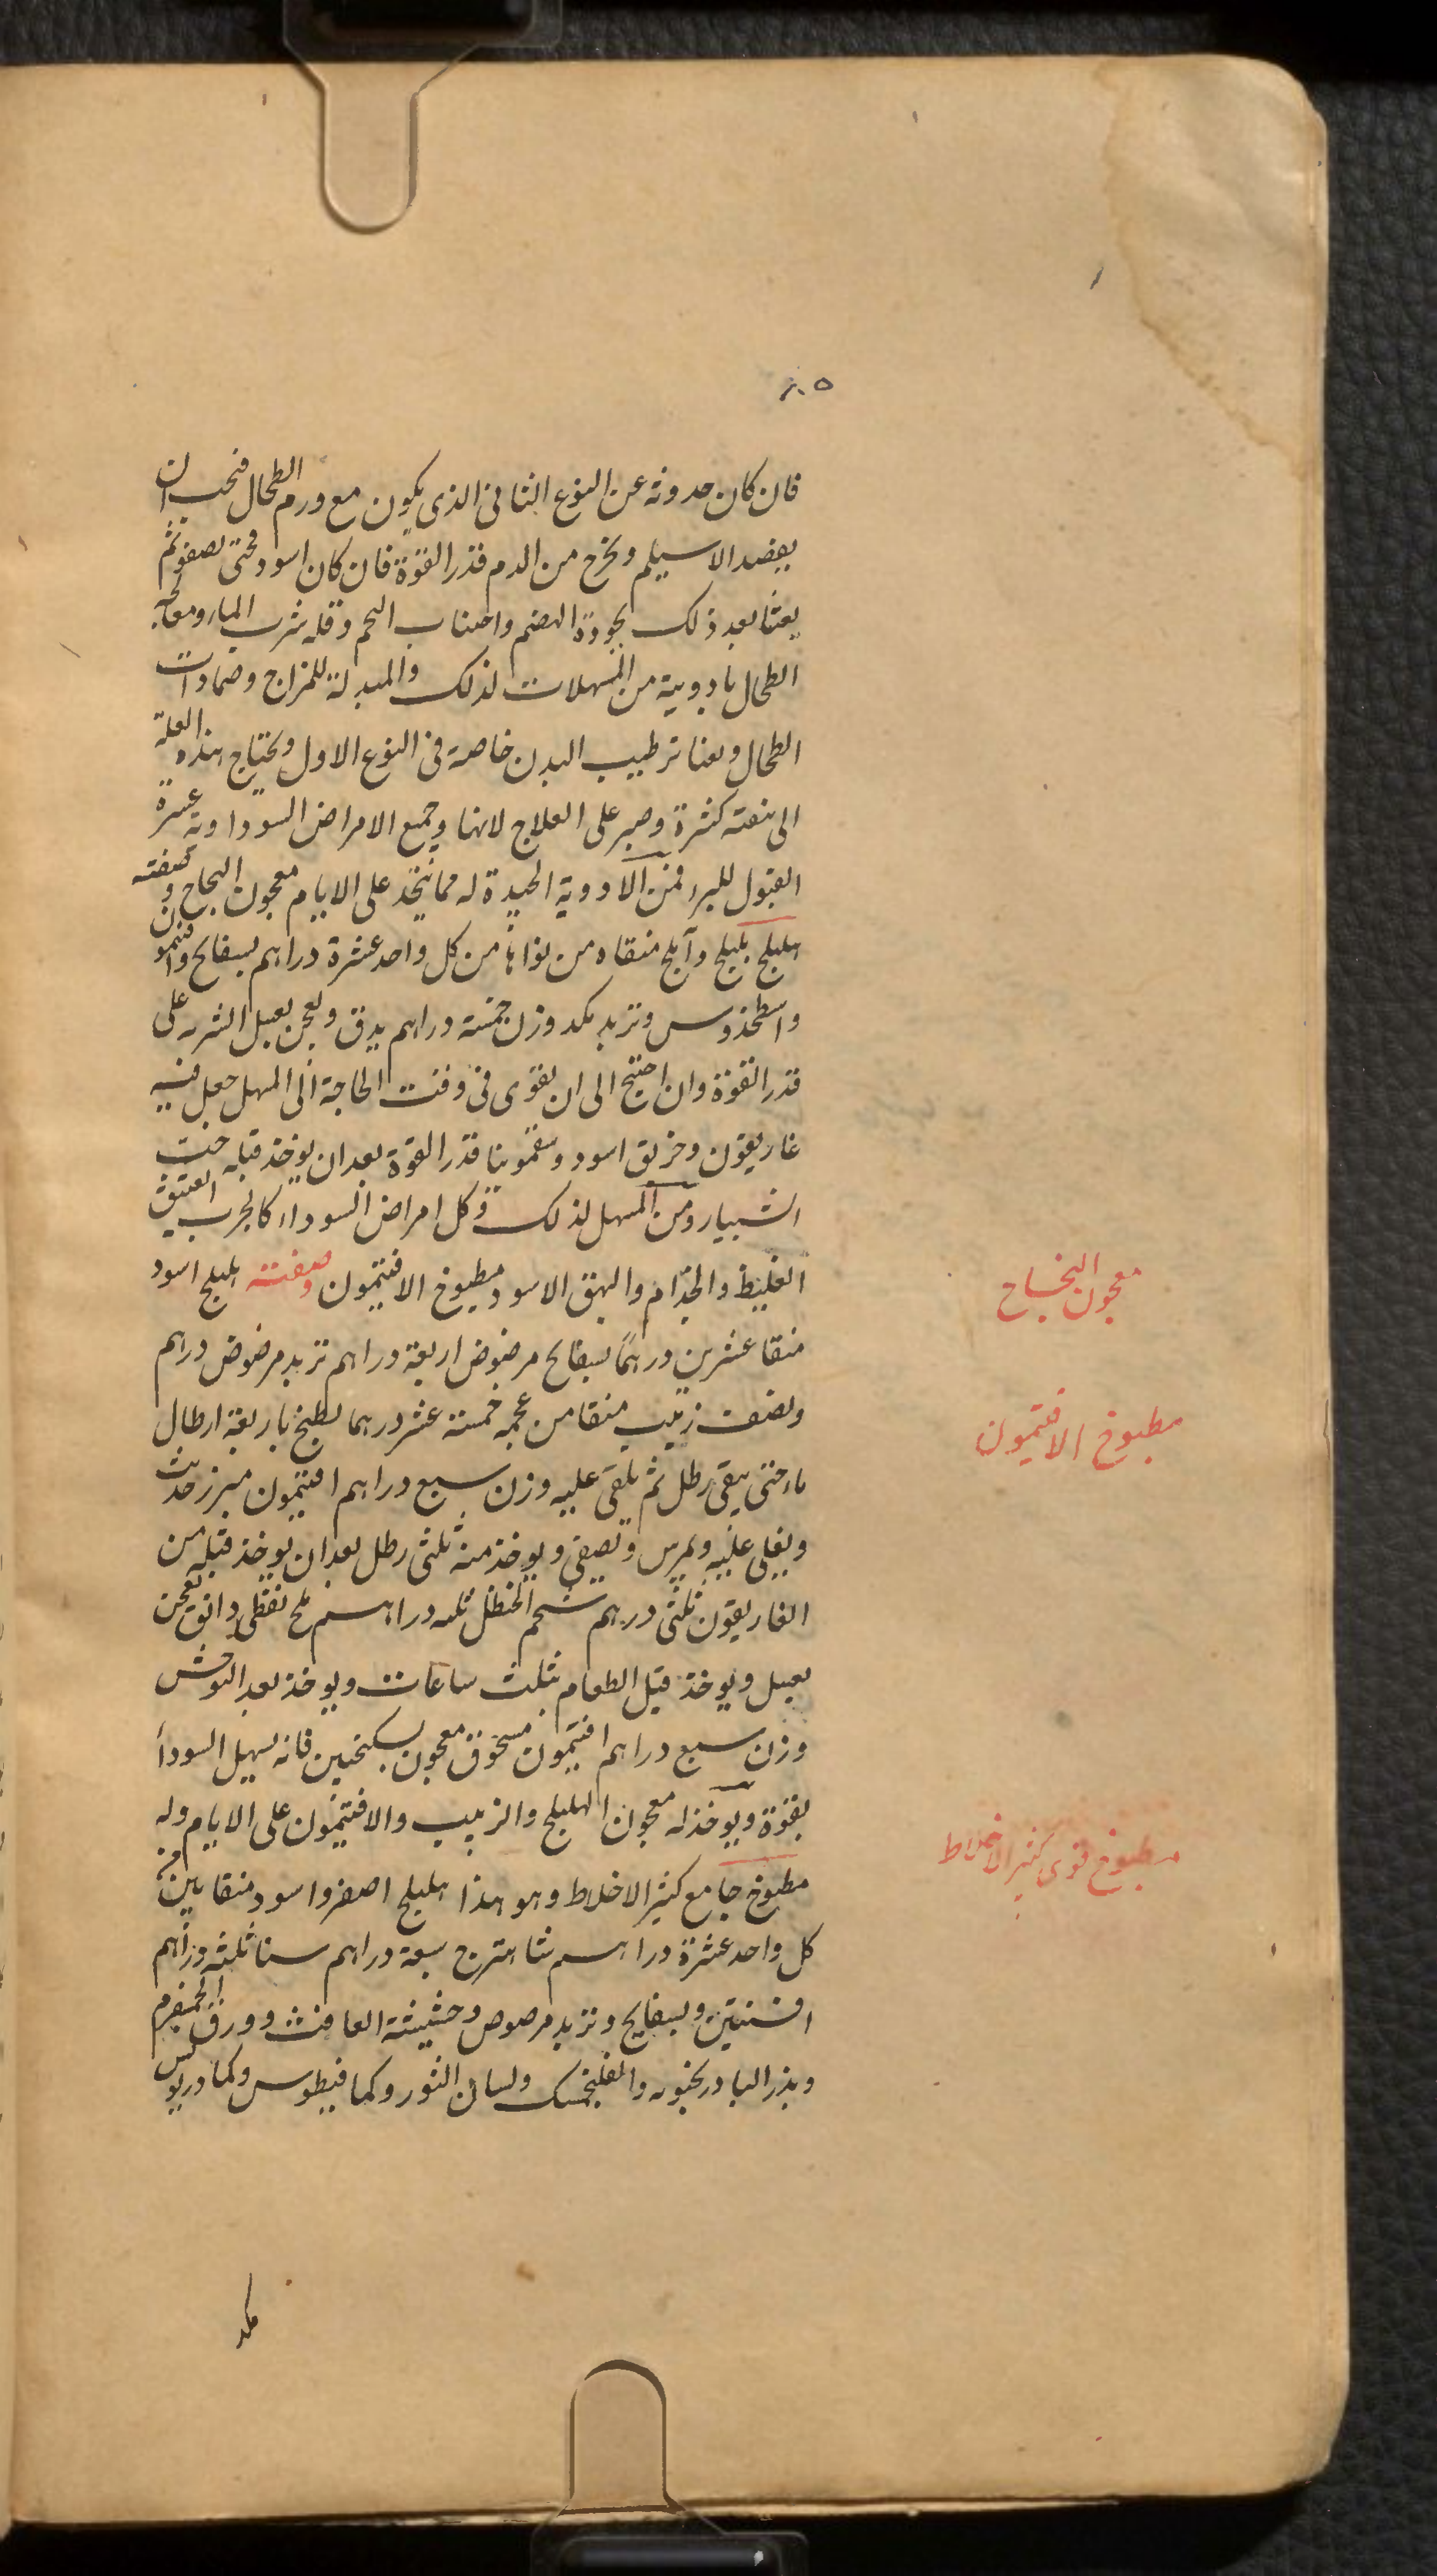 ٨٥
فان كان حدوثه عن النوع الثانى الذى يكون مع ورم الطحال فيجب ان
يفصد الاسيلم ويخرج من الدم قدر القوة فان كان اسود فحتى يصفو ثم
يعنا بعد ذلك بجودة الهضم واجتناب اللحم وقلة شرب الماء ومعالجة
الطحال بادوية من المسهلات لذلك والمبدلة للمزاج وضمادات
الطحال ويعنا بترطيب البدن خاصة فى النوع الاول ويحتاج هذه العلة
الى كثرة وصبر على العلاج لانها وجميع الامراض السوداوية عسرة
القبول للبرء فمن الادوية الجيدة له مما يتخذ على الايام معجون النجاح وصفته
هليلج بليلج وآملج منقاه من نواها من كل واحد عشرة دراهم بسفايج وافتيمون
واسطخدوس وتربد مكد وزن خمسة دراهم يدق ويعجن بعسل الشربه على
قدر القوة وان احتيج الى ان يقوى فى وقت الحاجة الى المسهل جعل فيه
غاريقون وخربق اسود وسقمونيا قدر القوة بعد ان يوخذ قبله حب
الشبيار ومن المسهل لذلك وكل امراض السوداء كالجرب العتيق
الغليظ والجذام والبهق الاسود مطبوخ الافتيمون وصفته هليلج اسود
منقا عشرين درهما بسفايج مرضوض اربعة دراهم تربد مرضوض دراهم
ونصف زبيب منقا من عجمه خمسة عشر درهما يطبخ باربعة ارطال
ماء حتى يبقى رطل ثم يلقى عليه وزن سبع دراهم افتيمون حديث
ويغلى عليه ويمرس ويصفى ويوخذ منه ثلثى رطل بعد ان يوخذ قبله من
الغاريقون ثلثى درهم شحم الحنظل ثلث دراهم ملح نفطى دانق يعجن
بعسل ويوخذ قبل الطعام بثلث ساعات ويوخذ بعد
وزن سبع دراهم افتيمون مسحوق معجون بسكنجبين فانه يسهل السودا
بقوة ويوخذ له معجون الهليلج والزبيب والافتيمون على الايام وله
مطبوخ جامع كثير الاخلاط وهو هذا هليلج اصفر واسود منقا بين من
كل واحد عشرة دراهم شاهترج سبعة دراهم سنا ثلثة دراهم
افسنتين وبسفايج وتربد مرضوض وحشيشة الغافث وورق
وبذر البادرنجبويه والفلنجمشك ولسان الثور وكمافيطوس وكمادريوس
معجون النجاح
مطبوخ الافتيمون
مطبوخ قوى كثير الاخلاط